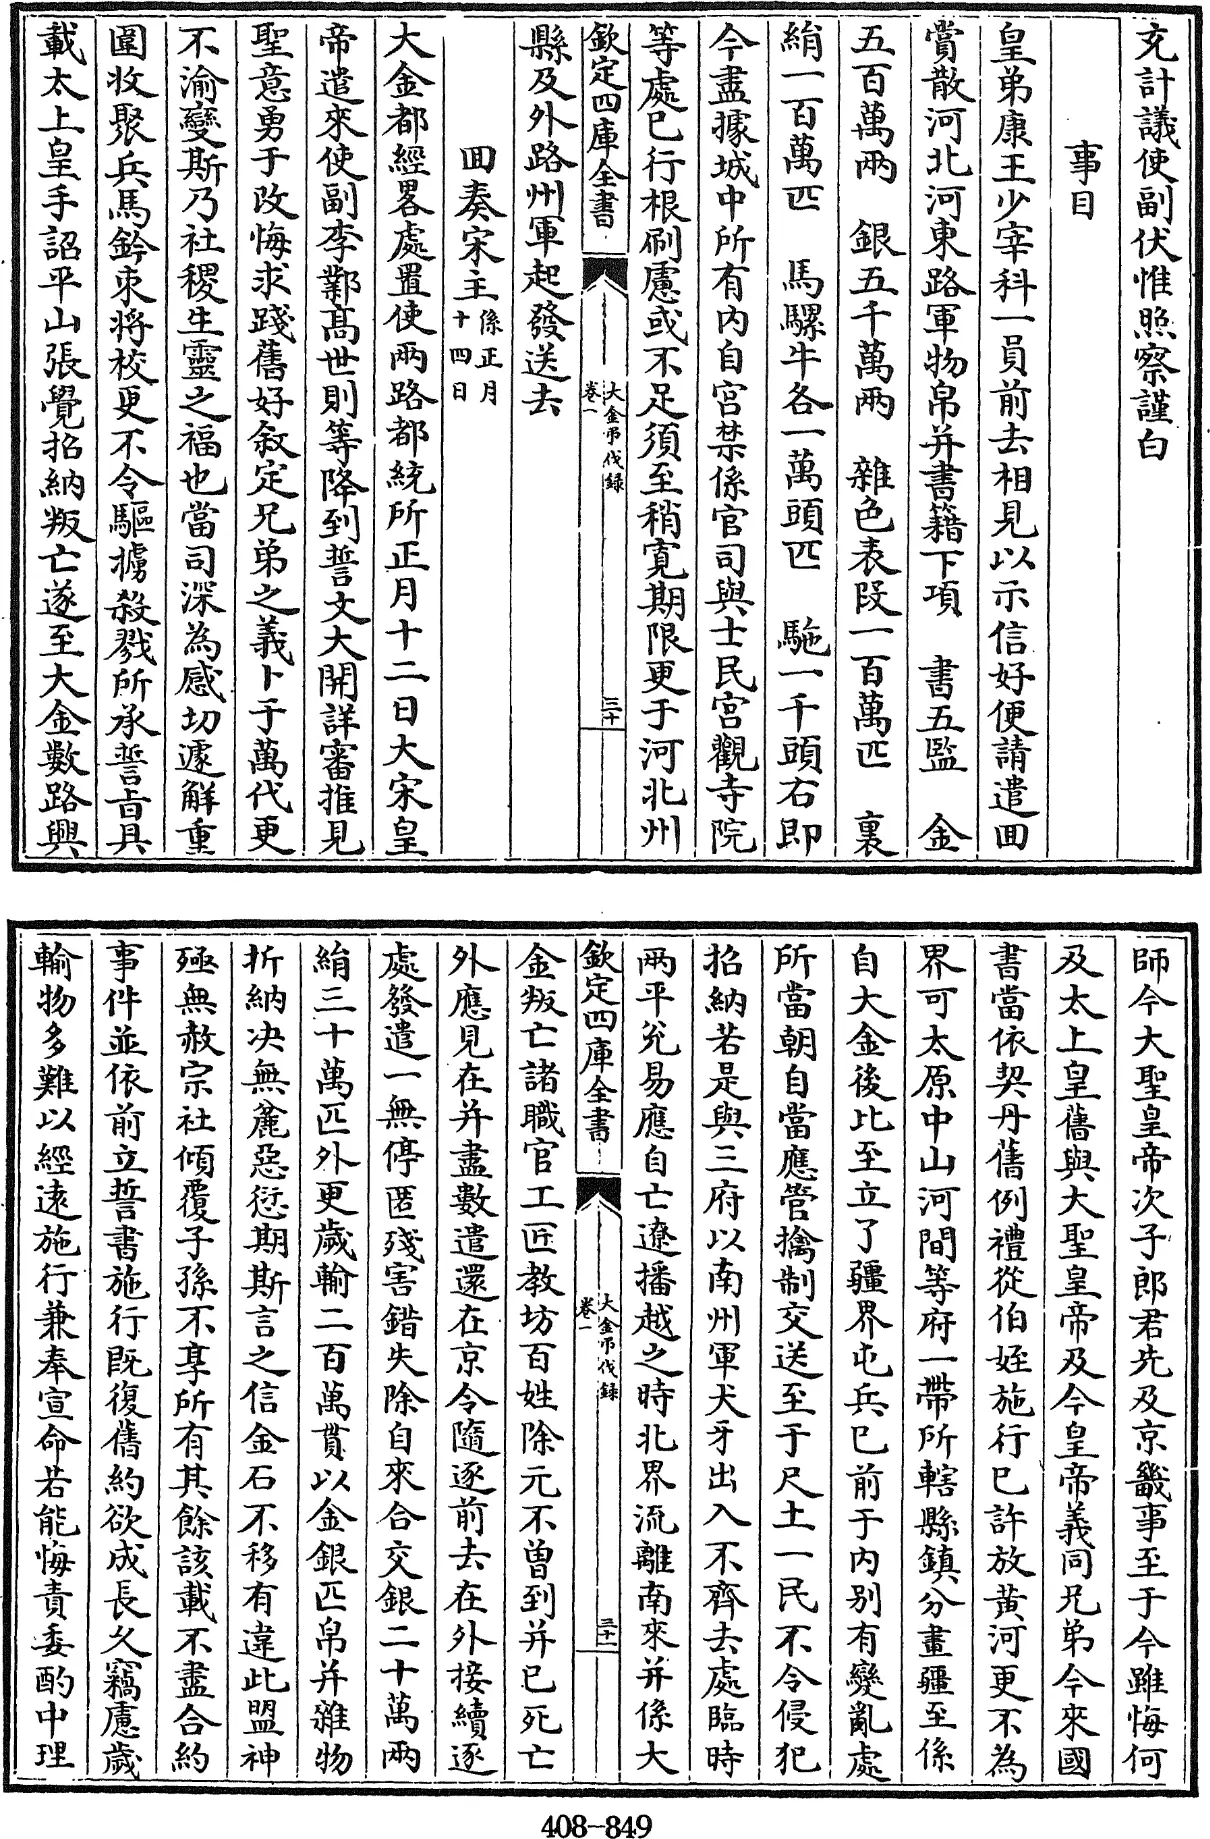 充計議使副伏惟照察謹白
事目
皇弟康王少宰科一員前去相見以示信好便請遣回
賞散河北河東路軍物帛并書籍下項　書五監　金
五百萬兩　銀五千萬兩　雜色表段一百萬匹　裏
絹一百萬匹　馬騾牛各一萬頭匹　駞一千頭右即
今盡據城中所有内自宮禁係官司與士民宮觀寺院
等處已行根刷慮或不足須至稍寛期限更于河北州
欽定四庫全書
大金弔伐録
卷一
三十
縣及外路州軍起發送去
回奏宋主係正月十四日
大金都經畧處置使兩路都統所正月十二日大宋皇
帝遣來使副李鄴髙世則等降到誓文大開詳審推見
聖意勇于改悔求踐舊好叙定兄弟之義卜于萬代更
不渝變斯乃社稷生靈之福也當司深為感切遽解重
圍收聚兵馬鈐束將校更不令驅擄殺戮所承誓旨具
載太上皇手詔平山張覺招納叛亡遂至大金數路興
師今大聖皇帝次子郎君先及京畿事至于今雖悔何
及太上皇舊與大聖皇帝及今皇帝義同兄弟今來國
書當依契丹舊例禮從伯姪施行已許放黄河更不為
界可太原中山河間等府一帶所轄縣鎮分畫疆至係
自大金後比至立了疆界屯兵已前于内别有變亂處
所當朝自當應管擒制交送至于尺土一民不令侵犯
招納若是與三府以南州軍犬牙出入不齊去處臨時
兩平兊易應自亡遼播越之時北界流離南來并係大
欽定四庫全書
大金弔伐録
卷一
三十一
金叛亡諸職官工匠教坊百姓除元不曾到并已死亡
外應見在并盡數遣還在京令隨逐前去在外接續逐
處發遣一無停匿殘害錯失除自來合交銀二十萬兩
絹三十萬匹外更歲輸二百萬貫以金銀匹帛并雜物
折納决無麄惡愆期斯言之信金石不移有違此盟神
殛無赦宗社傾覆子孫不享所有其餘該載不盡合約
事件並依前立誓書施行既復舊約欲成長久竊慮歲
輸物多難以經逺施行兼奉宣命若能悔責委酌中理
408-849